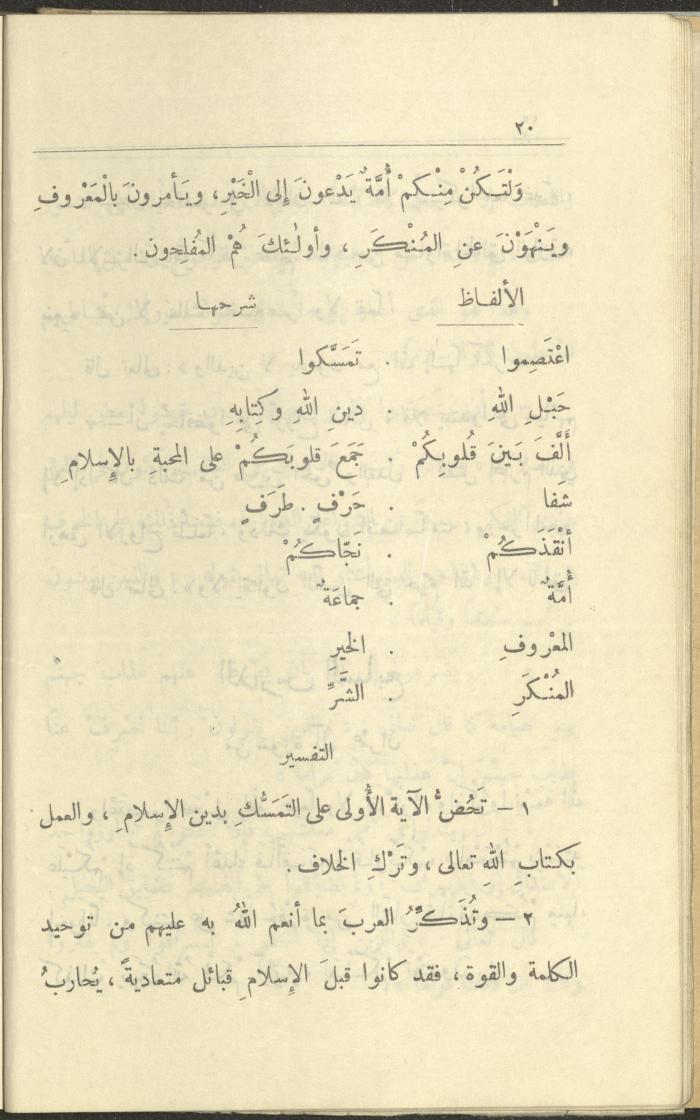 ٢٠
وَلْتَكُنْ مِنْكمْ أُمَّةٌ يَدْعونَ إلى الْخَيْرِ، ويَأمرونَ بالْمَعْروفِ
ويَنْهَوْنَ عنِ المُنْكَرِ، وأولٰئكَ هُمُ المُفلِحون.
الألفاظ شرحها
اعْتَصِموا . تَمَسَّكوا
حَبْلِ اللهِ . دينِ اللهِ وكِتابِهِ
أَلَّفَ بَينَ قُلوبِكُمْ . جَمَعَ قلوبَكُمْ على المحبةِ بالإِسلامِ
شَفا . حَرْفٍ . طَرَفٍ
أنْقَذَكُمْ . نَجّاكُمْ
أُمَّةٌ . جماعَةٌ
المعْروفِ . الخيرَ
المُنْكَرِ . الشَّرَّ
التفسير
١ — تَحُضُّ الآيةُ الأُولى على التَمَسُّكِ بدينِ الإِسلامِ، والعمل
بكتابِ اللهِ تعالى، وتَرْكِ الخلاف.
٢ — وتُذَكِّرُ العربَ بما أنعم اللهُ به عليهم من توحيد
الكلمة والقوة، فقد كانوا قبلَ الإِسلامِ قبائل متعاديةً، يُحاربُ